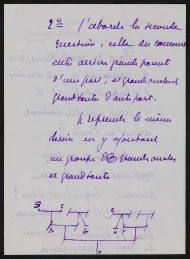 2° J'aborde la seconde
question, celle du concours
entre arrière grands parents
d'une part, et grands oncles
grand tantes d'autre part.
Je reprends le même
dessin en y ajoutant
un groupe de grands oncles
et grand tantes
B C
A
D